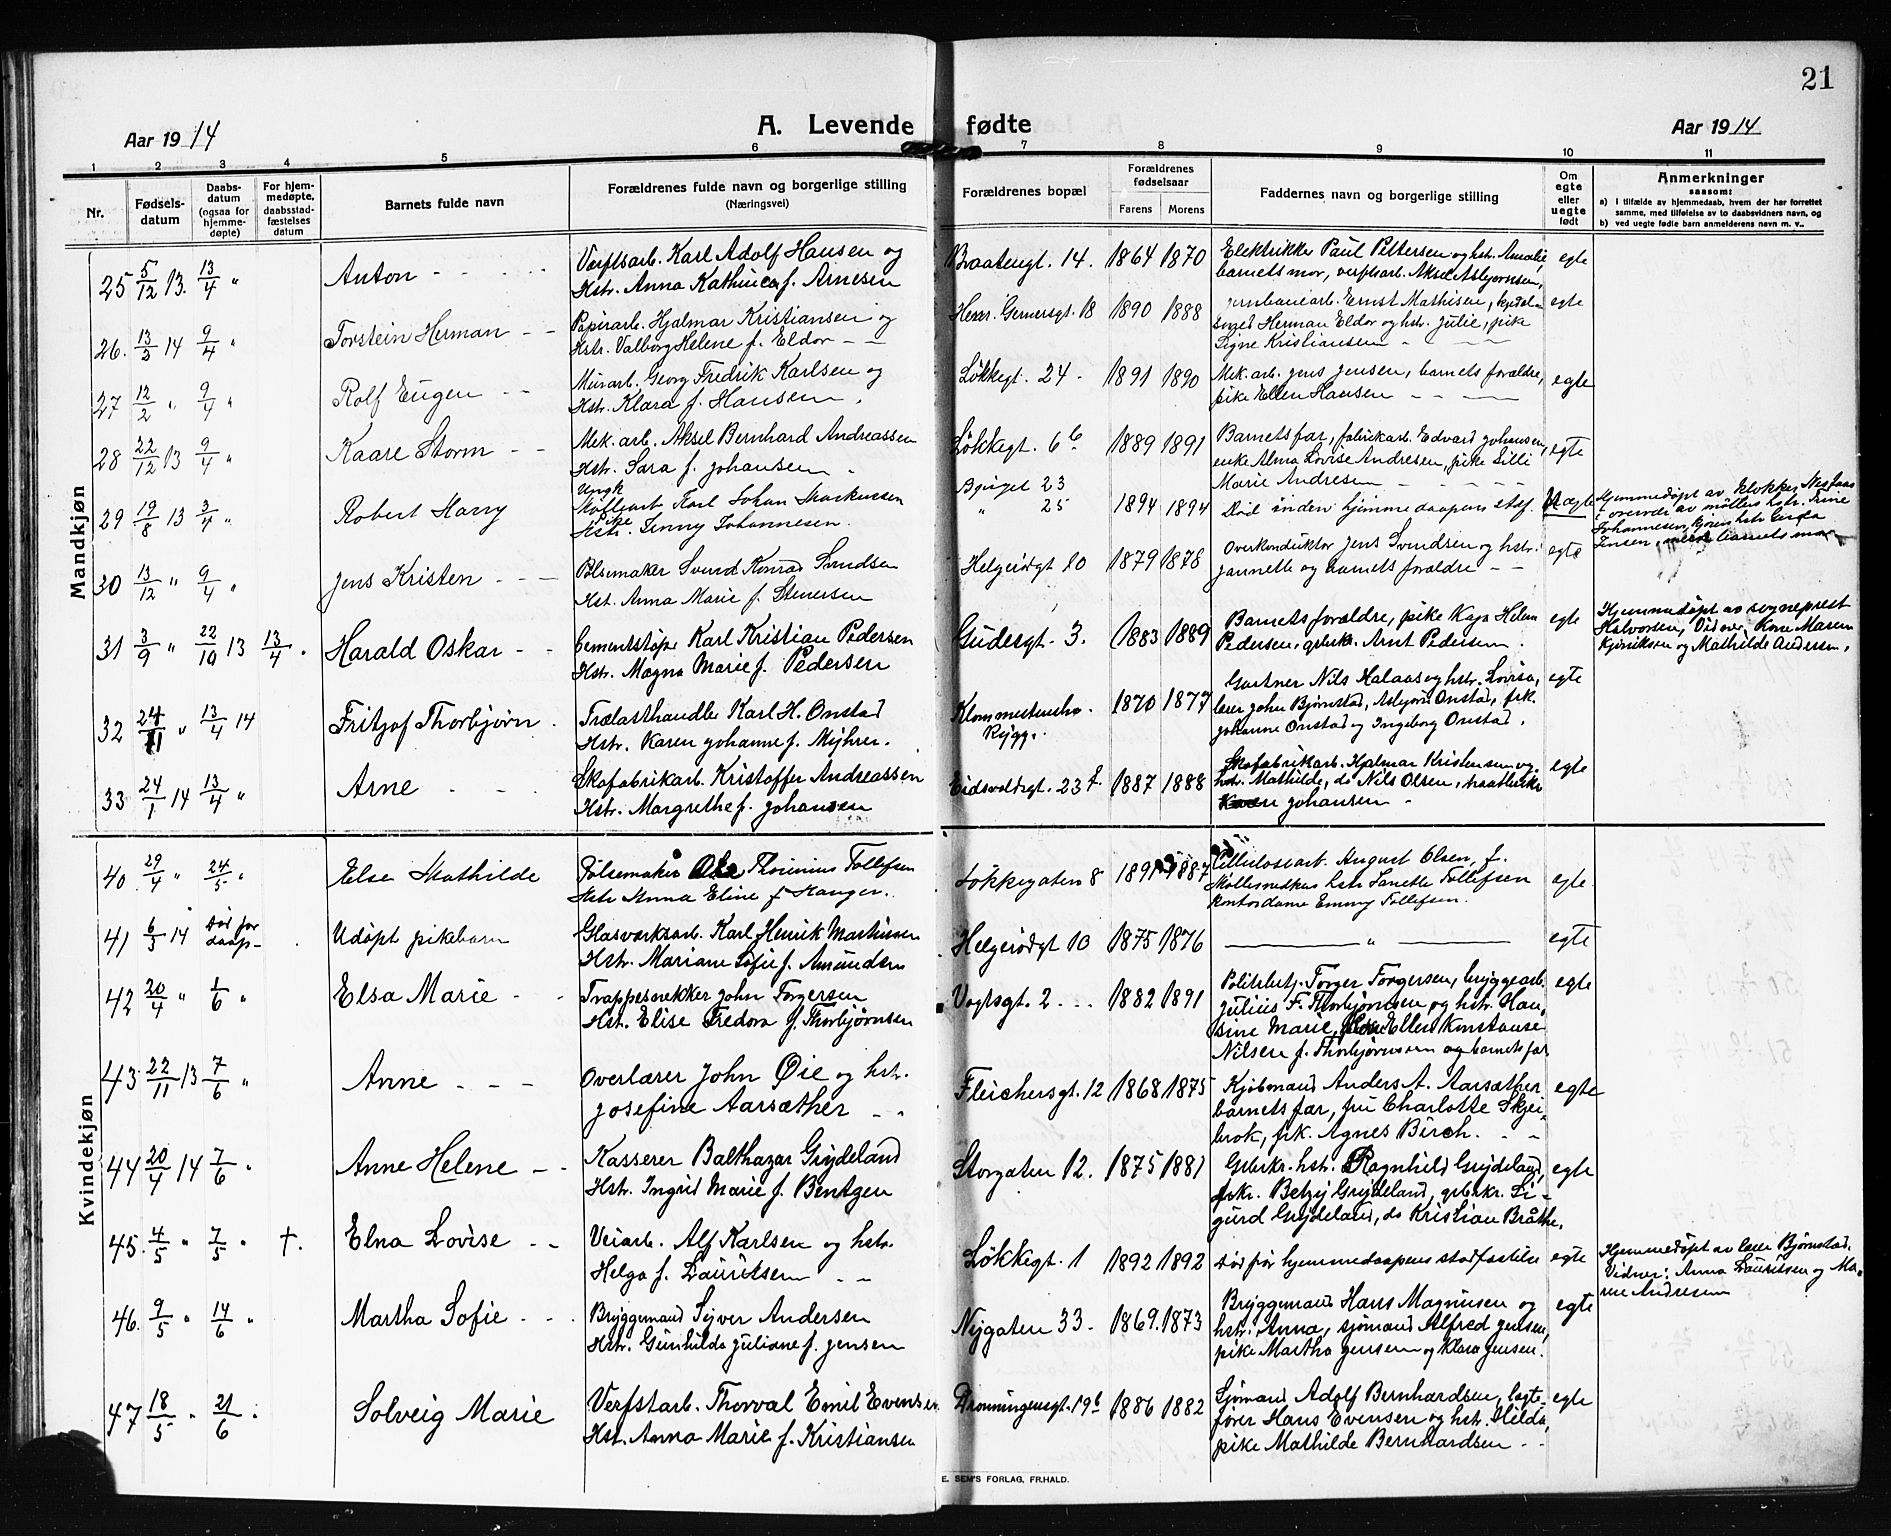 21
Aar 1914
A. Levende fødte
Aar 1914
1 2 3 4 5 6 7 8 9 10 11
Nr.
Fødsels-
datum
Daabs-
datum
(ogsaa for
hjemme-
døpte)
For hjem-
medøpte,
daabsstad-
fæstelses
datum
Barnets fulde navn
Forældrenes fulde navn og borgerlige stilling
(Næringsvei)
Forældrenes bopæl
Forældrenes
fødselsaar
Farens Morens
Faddernes navn og borgerlige stilling
Om
egte
eller
uegte
født
Anmerkninger
saasom:
a) I tilfælde av hjemmedaab, hvem der har forrettet
samme, med tilføielse av to daabsvidners navn, og
b) ved uegte fødte barn anmelderens navn m. v..
Mandkjøn
25 5/12 13. 13/4 "
Anton
Verftsarb. Karl Adolf Hansen og
Hstr. Anna Kathinca f. Arnesen
Braatengt. 14. 1864 1870
Elektrikker Paul Pettersen og hst. Amalie,
barnets mor, verftarb. Aksel Asbjørnsen,
egte
26. 13/2 14 9/4 "
Torstein Herman
Papirarb. Hjalmar Kristiansen og
Hstr. Valborg Helene f. Eldor
Henr. Gernersgt. 18 1890 1888
jernbanearb. Ernst Mathisen,
Herman Eldor og hstr. Julie, pike
Signe Kristiansen
egte
27 12/2 " 9/4 "
Rolf Eugen
Murarb. Georg Fredrik Karlsen og
Hstr. Klara f. Hansen
Løkkegt. 24 1891 1890
Mek. arb. Jens Jensen, barnets forældre,
pike Ellen Hansen
egte
28 22/12 13 9/4 "
Kaare Storm
Mek. arb. Aksel Bernhard Andreassen
Hstr. Sara f. Johansen
Løkkegt. 6b 1889 1891
Barnets far, fabrikarb. Edvard Johansen,
enke Alma Lovise Andresen, pike Lilli
Marie Andresen
egte
29 19/8 13 3/4 "
Robert Harry
Ungk
Karl Johan Markussen
Pike
Hstr. Jenny Johannesen
23
" 25 1894 1894
Død inden hjemmedaapens stdf.
Uegte
Hjemmedøpt av klokker Nesfaas
i overvær av møllers hstr. Trine
Johannesen,
Jensen, barnets mor
30 13/12 " 9/4 "
Jens Kristen
Pølsemaker Svend Konrad Svendsen
Hst. Anna Marie f. Stenersen
Helgerødgt 10 1879 1878
Overkonduktør Jens Svendsen og hstr.
Jannette og barnets forældre
egte
31 3/9 " 22/10 13 13/4
Harald Oskar
Cementstøper Karl Kristian Pedersen
Hstr. Magna Marie f. Pedersen
Gudesgt. 3. 1883 1889
Barnets forældre, pike Kaja Helene
Pedersen, Arnt Pedersen
egte
Hjemmedøpt av sogneprest
Halvorsen, Maren
og Mathilde Andersen.
32 24/11 " 13/4 14
Fritjof Thorbjørn
Trælasthandler Karl H. Onstad
Hstr. Karen Johanne f. Myhrer.
Rygge. 1870 1877
Gartner Nils Halaas og hstr. Lovisa,
lærer John Bjørnstad, Asbjørn Onstad, frk.
Johanne Onstad og Ingeborg Onstad.
egte
33 24/1 14 13/4 "
Arne
Skofabrikarb. Kristoffer Andreassen
Hstr. Margrethe f. Johansen
Eidsvoldgt. 23 f. 1887 1888
Skofabrikarb. Hjalmar Kristensen og
hstr. Mathilde, do Nils Olsen,
Johansen
egte
Kvindekjøn
40 29/4 " 24/5 "
Else Mathilde
Pølsemaker Thorinius Tollefsen
Hstr Anna Eline f Hanger.
Løkkegaten 8 1891 1887
Cellulosearb. August Olsen, f.
Møllesnedkers hstr Janette Tollefsen
Kontordame Emmy Tollefsen.
egte
41 6/3 14 Død før
daap
Udøpt pikebarn
Glasværksarb. Karl Henrik Martinsen
Hstr. Mariane Sofie f. Amundsen
Helgerødgt 10 1875 1876
"
egte
42 20/4 " 1/6 "
Elsa Marie
Trappesnekker John Torgersen
Hst. Elise Fredora f. Thorbjørnsen
Vogtsgt. 2 1882 1891
Politibetj. Torger Torgersen, bryggearb.
Julius F. Thorbjørnsen og hstr. Han-
sine Marie, Ellen Konstanse
Nilsen f. Thorbjørnsen og barnets far
egte
43 22/11 13 7/6 "
Anne
Overlærer John Øie og hst.
Josefine Aarsæther
Fleichersgt. 12 1868 1875
Kjøbmand Anders A. Aarsæther
barnets far, fru Charlotte Skjei-
brok, frk. Agnes Birch.
egte
44 20/4 14 7/6 "
Anne Helene
Kasserer Balthazar Grydeland
Hstr. Ingrid Marie f. Bentzen
Storgaten 12. 1875 1881
Grbrkr. hstr. Ragnhild Grydeland,
frk. Betzy Grydeland, grbrkr. Si-
gurd Grydeland, do Kristian Bråthe.
egte
45. 4/5 " 7/5 " †.
Elna Lovise
Veiarb. Alf Karlsen og hstr.
Helga f. Lauritsen
Løkkegt. 1 1892 1892
død før hjemmedaapens stadfæstelse
egte
Hjemmedøpt av lærer Bjørnstad.
Vidner: Anna Lauritsen og Ma-
rie Andresen
46. 9/5 " 14/6 "
Martha Sofie
Bryggemand Syver Andersen
Hstr. Gunhilda Juliane f. Jensen
Nygaten 33. 1869. 1873
Bryggemand Hans Magnusen og
hstr. Anna, sjømand Alfred Jensen,
pike Martha Jensen og Klara Jensen.
egte
47 18/5 " 21/6 "
Solveig Marie
Verfstarb. Thorval Emil Evensen
Hst. Anna Marie f. Kristiansen
Dronningensgt. 19b 1886 1882
Sjømand Adolf Bernhardsen, lægte-
fører Hans Evensen og hst. Hilda,
pike Mathilde Bernhardsen
egte
E. SEM'S FORLAG, FR.HALD.